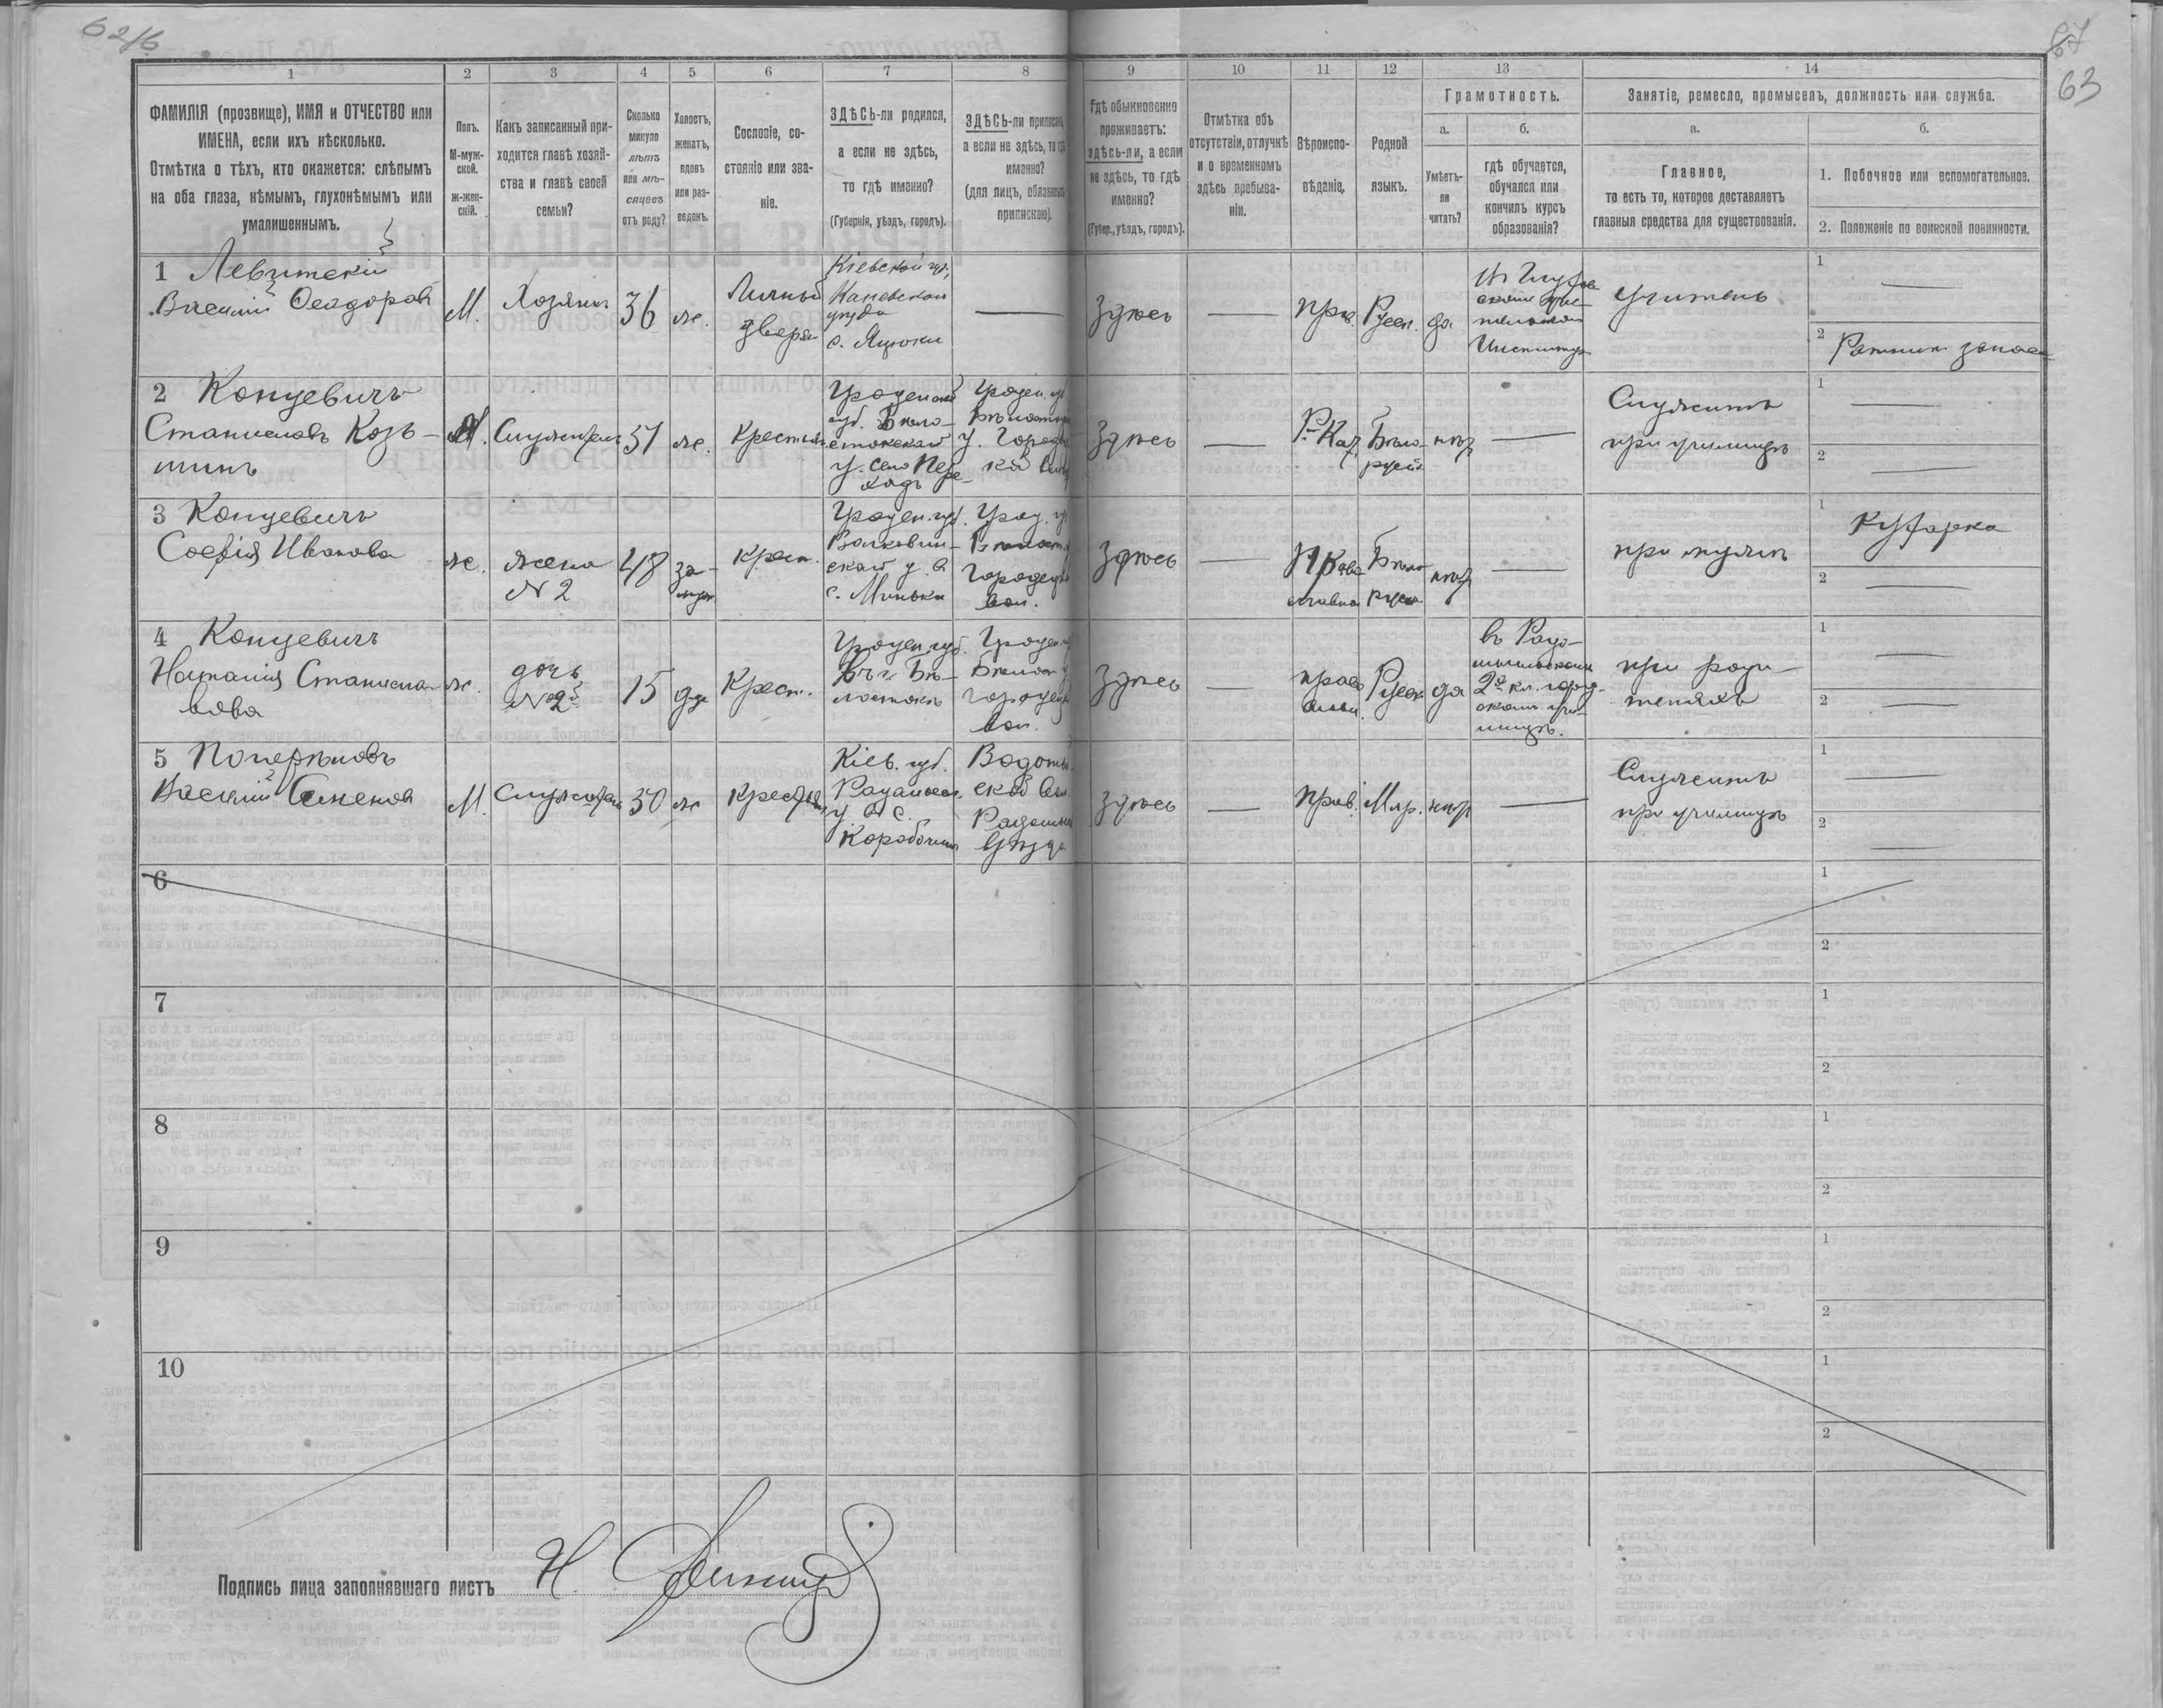 62/б
67
63
1
2
3
4
5
6
7
8
9
10
11
12
13
14
ФАМИЛІЯ (прозвище), ИМЯ и ОТЧЕСТВО или
ИМЕНА, если ихъ нѣсколько.
Отмѣтка о тѣхъ, кто окажется: слѣпымъ
на оба глаза, нѣмымъ, глухонѣмымъ или
умалишеннымъ.
Полъ.
М-муж-
ской.
Ж-жен-
скій.
Какъ записанный при-
ходится главѣ хозяй-
ства и главѣ своей
семьи?
Сколько
минуло
лѣтъ
или мѣ-
сяцевъ
отъ роду?
Холостъ,
женатъ,
вдовъ
или раз-
веденъ.
Сословіе, со-
стояніе или зва-
ніе.
ЗДѢСЬ-ли родился,
а если не здѣсь,
то гдѣ именно?
(Губернія, уѣздъ, городъ).
ЗДѢСЬ-ли приписанъ,
а если не здѣсь, то гдѣ
именно?
(для лицъ, обязанныхъ
припискою).
Гдѣ обыкновенно
проживаетъ:
здѣсь-ли, а если
не здѣсь, то гдѣ
именно?
(Губер., уѣздъ, городъ).
Отмѣтка объ
отсутствіи, отлучкѣ
и о временномъ
здѣсь пребыва-
ніи.
Вѣроиспо-
вѣданіе.
Родной
языкъ.
Грамотность.
а.
Умѣетъ-
ли
читать?
б.
гдѣ обучается,
обучался или
кончилъ курсъ
образованія?
Занятіе, ремесло, промыселъ, должность или служба.
а.
Главное,
то есть то, которое доставляетъ
главныя средства для существованія.
б.
1. Побочное или вспомогательное.
2. Положеніе по воинской повинности.
1 Левитскій
Василій Феодоровъ
М.
Хозяинъ
36
ж.
Личный
дворян
Кіевской губ.,
Каневскаго
уѣзда
с. Яцюки
здѣсь
прав.
Русск.
да
Институт
учитель
1
2
Ратникъ запаса
2 Концевичъ
Станиславъ Козь-
минъ
М.
Служитель
51
же.
Крестьян
Гроден
губ. Бѣло-
стокскаго
у. село
Гроден. губ
у.
здѣсь
Р. Кат.
Бѣло-
русск.
нѣт
Служитъ
при училищѣ
1
2
3 Концевичъ
Софія Иванова
ж.
жена
№ 2
48
за-
муж.
крест.
Гроден. губ.
у.
с. Миньки
вол.
здѣсь
Право
славна
Бѣло
русск
нѣт
при мужѣ
1
Кухарка
2
4 Концевичъ
Наталія Станисла-
вова
ж.
дочь
№ 2
15
д-ца
Крест.
Гроден. губ.
Бѣ-
лостокъ
Гроден
вол.
здѣсь
право
слав.
Русск
да
въ Радо-
мысльскомъ
2х кл. город-
скомъ учи-
лищѣ.
при роди-
теляхъ
1
2
5
Василій Семеновъ
М.
Служитель
30
ж
Крестьян
Кіев. губ.
у. с.
Коробочки
ской вол
уѣзда
здѣсь
прав.
Млр.
нѣт
Служитъ
при училищѣ
1
2
6
1
2
7
1
2
8
1
2
9
1
2
10
1
2
Подпись лица заполнявшаго листъ Н.